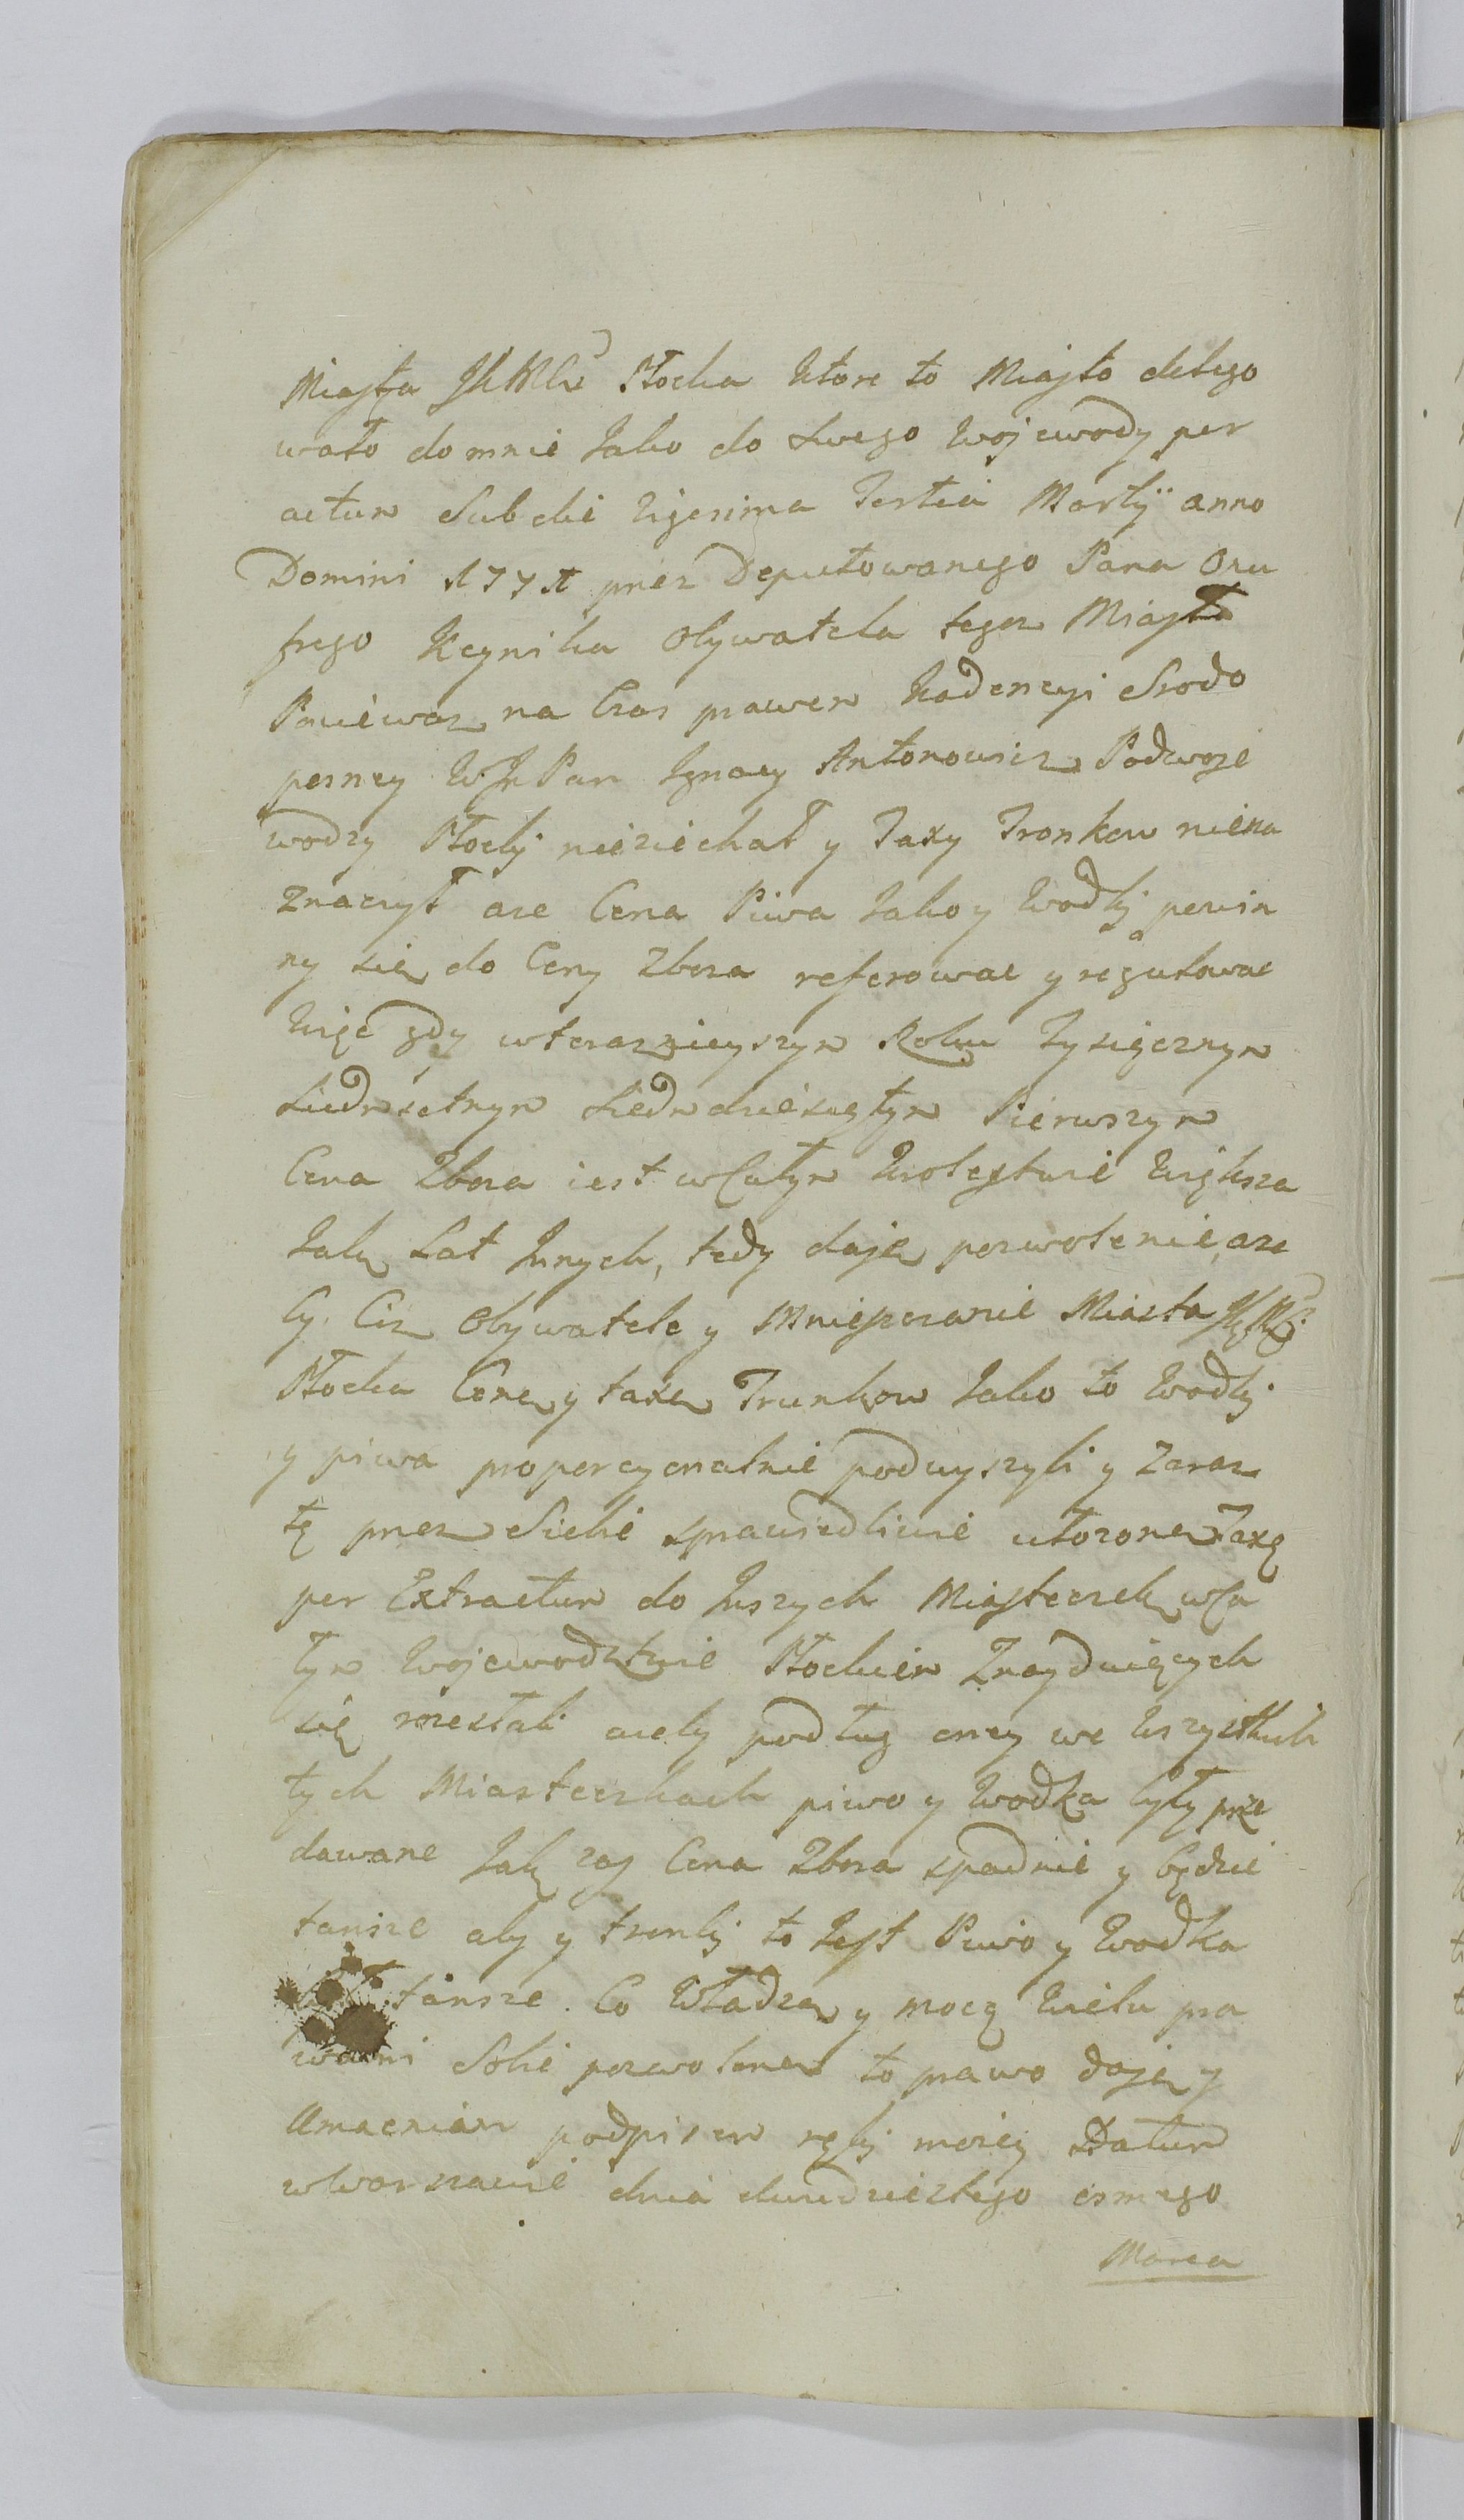 Miasta JKMci Płocka ktore to Miasto delego
wało do mnie Jako do swego Wojewody per
actum Sub die Vigesima Tertia Martij anno
Domini 1771 przez Deputowanego Pana Onu
frego Kcynika Obywatela tegoz Miasta
Poniewaz na Czas prawem Kadencyi Srodo
posney WJPan Ignacy Antonowicz Podwoje
wodzy Płocki nieziechał y Taxy Tronkow niena
znaczył aze Cena Piwa Jako y Wodki powin
ny się do Ceny Zboza referowac y regulowac
Więc gdy wteraznieyszym Roku Tysięcznym
Siedmsetnym Siedmdziesiątym Pierwszym
Cena Zboza iest wCałym Krolestwie Większa
Jak Lat Innych, tedy daję pozwolenie, aze
by Ciz Obywatele y Mnieszczanie Miasta JKMci
Płocka Cenę y taxę Trunkow Jako to Wodki
y piwa proporcyonalnie podwyszyli y Zaraz
tę przez Siebie sprawiedliwie ułozoną Taxę
per Extractum do Inszych Miasteczek wCa
łym Wojewodztwie Płockim Znayduiących
się rozesłali azeby podług oney we Wszystkich
tych Miasteczkach piwo y Wodka były prze
dawane Jak zas Cena Zboza spadnie y będzie
tansze aby y tronki to Jest Piwo y Wodka
tansze. Co Władzą y mocą Wielu pra
wami Sobie pozwoloną to prawo daję y
Umacniam podpisem ręki moiey Datum
wWarszawie dnia dwudziestego osmego
Marca